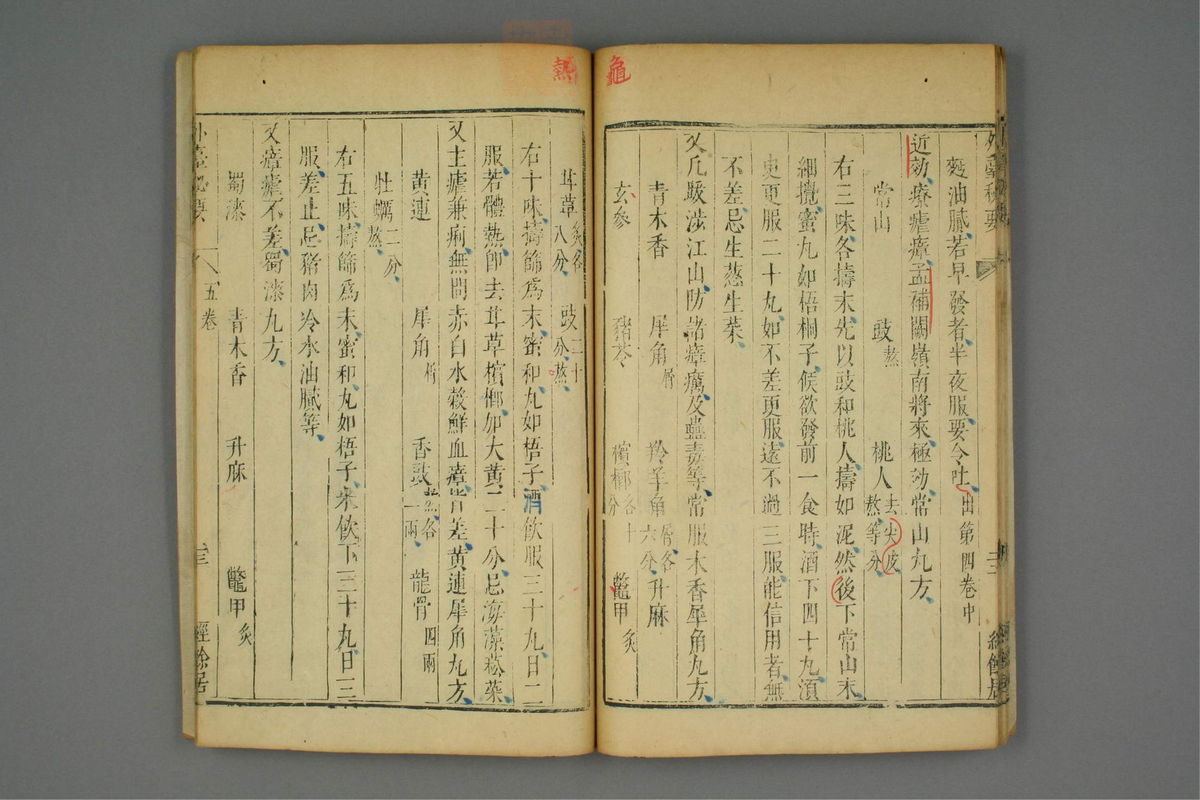 龜
外臺秘要
麪油膩若早發者半夜服要令吐出第四卷中
近効療瘧瘴孟補闕嶺南將來極効常山丸方
常山 豉熬 桃人去尖皮熬等分
右三味各擣末先以豉和桃人擣如泥然後下常山末
細攪蜜丸如梧桐子候欲發前一食時酒下四十丸湏
臾更服二十丸如不差更服遠不過三服能信用者無
不差忌生葱生菜
又凡跋涉江山防諸瘴癘及蠱毒等常服木香犀角丸方
青木香 犀角屑 羚羊角屑各六分 升麻
玄參 猪苓 檳榔各十分 鼈甲炙
熱
甘草炙各八分 豉二十分熬
右十味擣篩爲末蜜和丸如梧子酒飲服三十丸日二
服若體熱卽去甘草檳榔加大黃二十分忌海藻菘菜
又主瘧兼痢無問赤白水穀鮮血瘴皆差黃連犀角丸方
黃連 犀角屑 香豉熬各一兩 龍骨四兩
牡蠣二分熬
右五味擣篩爲末蜜和丸如梧子米飲下三十丸日三
服差止忌猪肉冷水油膩等
又瘴瘧不差蜀漆丸方
蜀漆 青木香 升麻 鼈甲炙
外臺秘要 五卷 三 經餘居